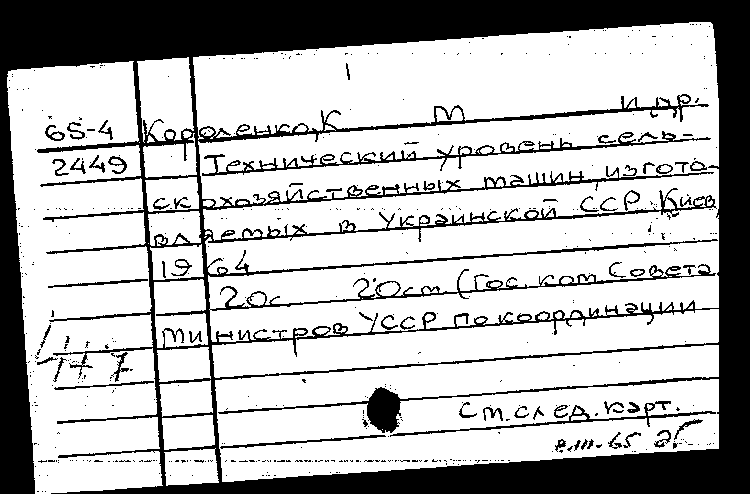 65-4 Короленко, К М и др.
2449 Технический уровень сель-
скохозяйственных машин, изгото-
вляемых в Украинской ССР. Киев,
1964
20с. 20см. (Гос. ком. Совета
Министров УССР по координации
См. след. карт.
8.III.65